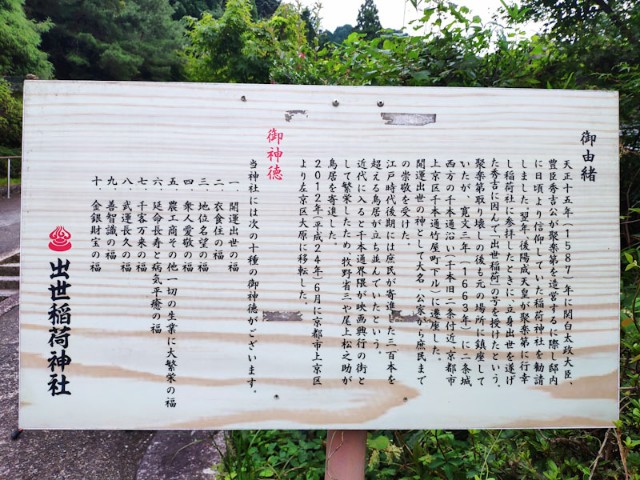 御由緒
天正十五年(1587)年に関白太政大臣、
豊臣秀吉公が聚楽第を造営するに際し邸内
に日頃より信仰していた稲荷神社を勧請
しました。翌年、後陽成天皇が聚楽第に行幸
し稲荷社に参拝したときに立身出世を遂げ
た秀吉に因んで「出世稲荷」の号を授けたという。
聚楽第取り壊しの後も元の場所に鎮座して
いたが、寛文三年(1663年)に二条城
西方の千本通沿い(千本旧二条付近、京都市
上京区千本通竹屋町下ル)に遷座した。
開運出世の神として大名、公家から庶民まで
の崇敬を受けた。
江戸時代後期には庶民が寄進した三百本を
超える鳥居が立ち並んでいたという。
近代に入ると千本通界隈が映画興行の街と
して繁栄したため、牧野省三や尾上松之助が
鳥居を寄進した。
2012年(平成24年)6月に京都市上京区
より左京区大原に移転した。
御神徳
当神社には次の十種の御神徳がございます。
一、開運出世の福
二、衣食住の福
三、地位名望の福
四、衆人愛敬の福
五、農工商その他一切の生業に大繁栄の福
六、延命長寿と病気平癒の福
七、千客万来の福
八、武運長久の福
九、善智識の福
十、金銀財宝の福
出世稲荷神社